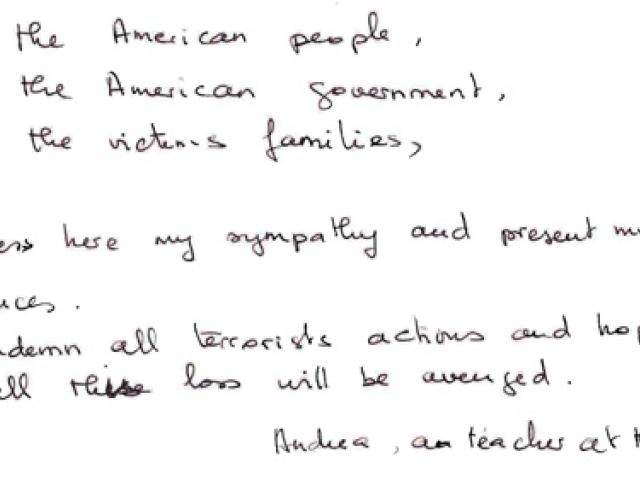 the American people,
the American government,
the victims families,
ess here my sympathy and present m
nces.
ndemn all terrorists actions and hop
ell this loss will be avenged.
Andrea, an teacher at